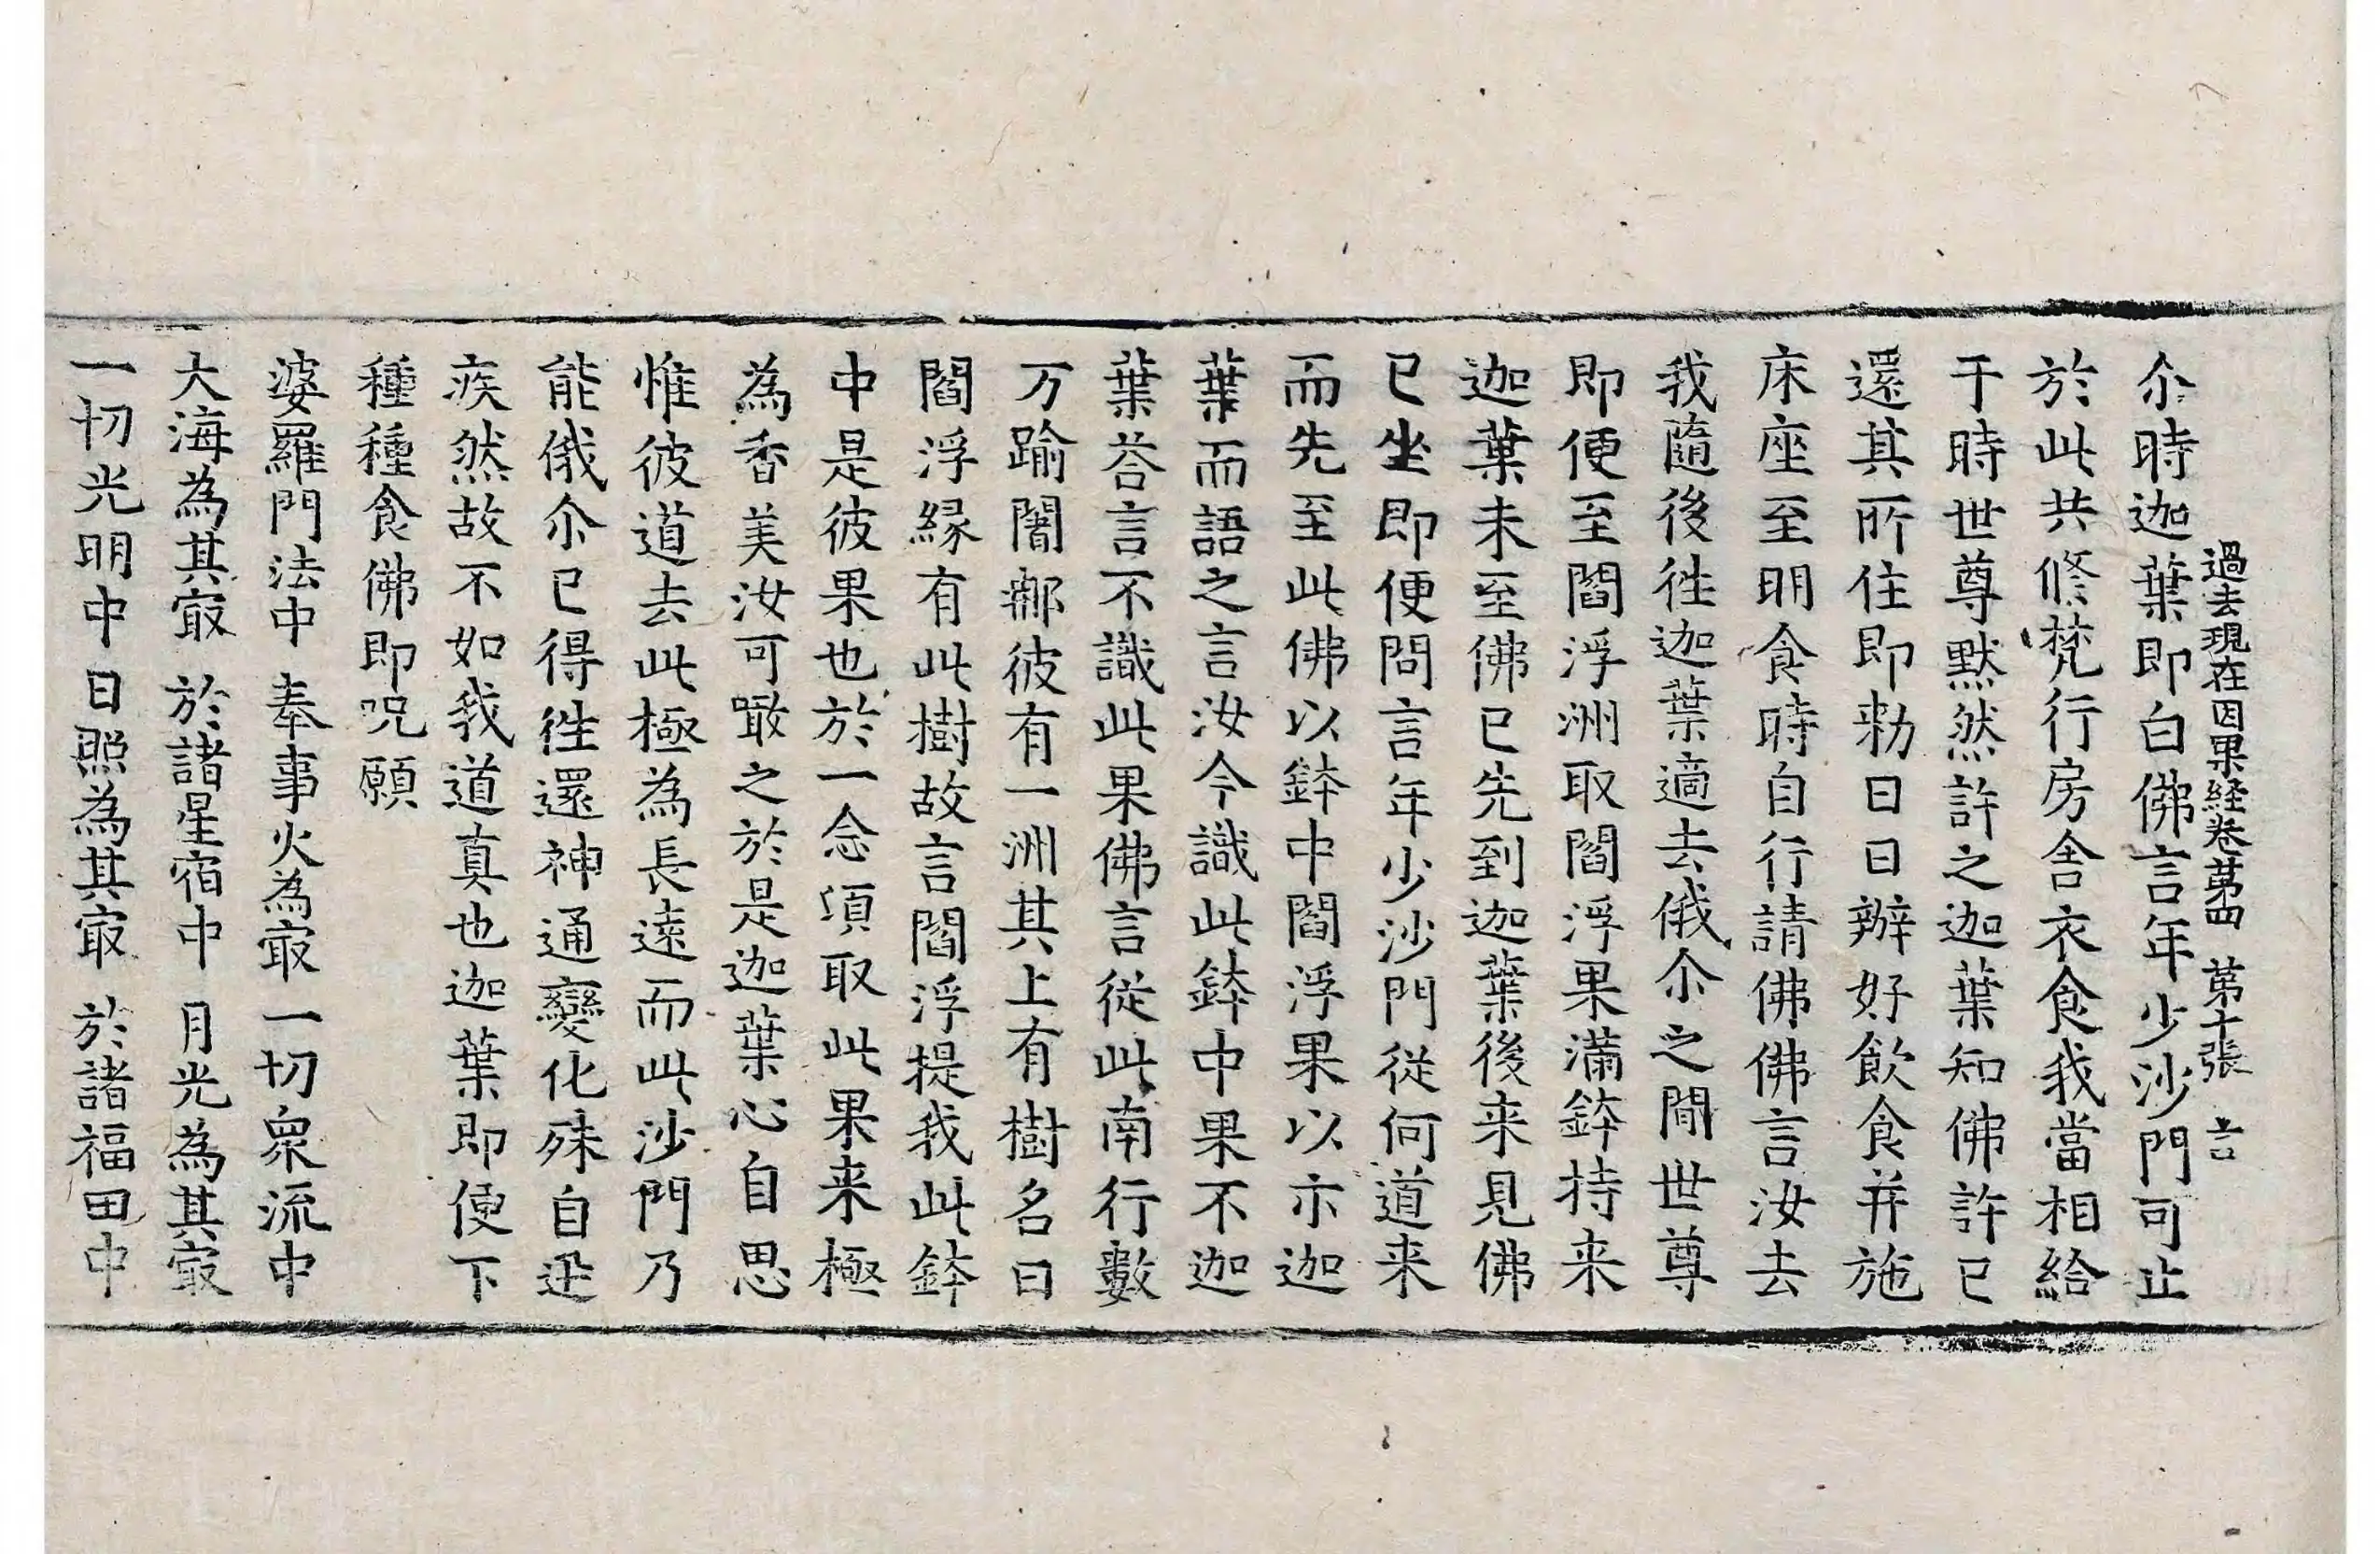 過去現在因果経卷苐四　苐十張　言
尒時迦葉即白佛言年少沙門可止
於此共修梵行房舍衣食我當相給
于時世尊默然許之迦葉知佛許已
還其所住即勑日日辦好飲食并施
床座至明食時自行請佛佛言汝去
我隨後徃迦葉適去俄尒之間世尊
即便至閻浮洲取閻浮果滿鉢持来
迦葉未至佛已先到迦葉後来見佛
已坐即便問言年少沙門從何道来
而先至此佛以鉢中閻浮果以示迦
葉而語之言汝今識此鉢中果不迦
葉荅言不識此果佛言從此南行數
万踰闍那彼有一洲其上有樹名曰
閻浮縁有此樹故言閻浮提我此鉢
中是彼果也於一念頃取此果来極
為香美汝可噉之於是迦葉心自思
惟彼道去此極為長遠而此沙門乃
能俄尒已得徃還神通變化殊自迅
疾然故不如我道真也迦葉即便下
種種食佛即呪願
婆羅門法中　奉事火為㝡　一切衆流中
大海為其㝡　於諸星宿中　月光為其㝡
一切光明中　日照為其㝡　於諸福田中